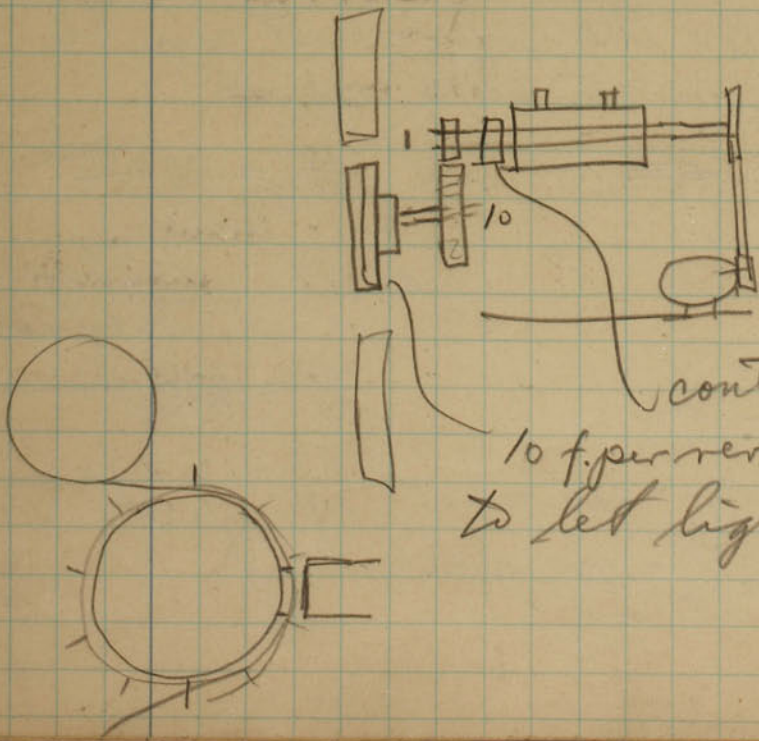 1
10
cont
10 f. per rev
to let lig